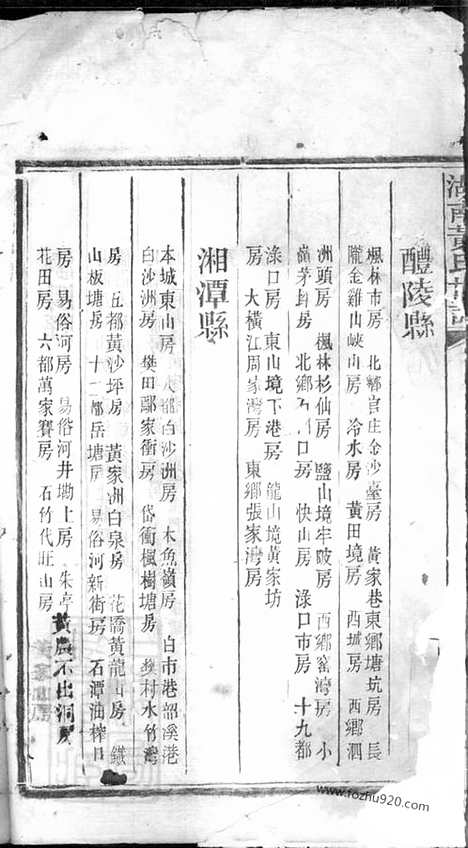 湖南黃氏世譜
醴陵縣
楓林市房 北鄉官庄金沙臺房 黃家巷東鄉塘坑房 長
隴金雞山峽山房 冷水房 黃田境房 西城房 西鄉泗
洲頭房 楓林杉仙房 鹽山境牢陂房 西鄉窑灣房 小
嵛茅田房 北鄉 口房 快山房 淥口市房 十九都
淥口房 東山境下港房 龍山境黃家坊
房 大橫江周家灣房 東鄉張家灣房
湘潭縣
本城東山房 都白沙洲房 木魚嶺房 白市巷韶溪港
白沙洲房 樊田鄢家衝房 岱衝楓樹塘房 樊村水竹灣
房 五都黃沙坪房 黃家洲白泉房 花橋黃龍山房 鐵
山板塘房 十 都岳塘房 易俗河新街房 石潭油榨口
房 易俗河房 易俗河井塘上房 朱亭
花田房 六都萬家賽房 石竹代旺山房 黃農不出洞房
八
www.fozhu920.com